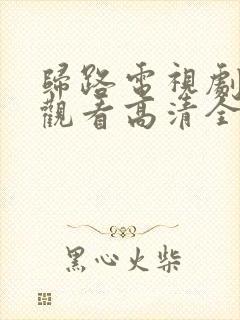 歸路電視劇
觀看高清全
黑心火柴